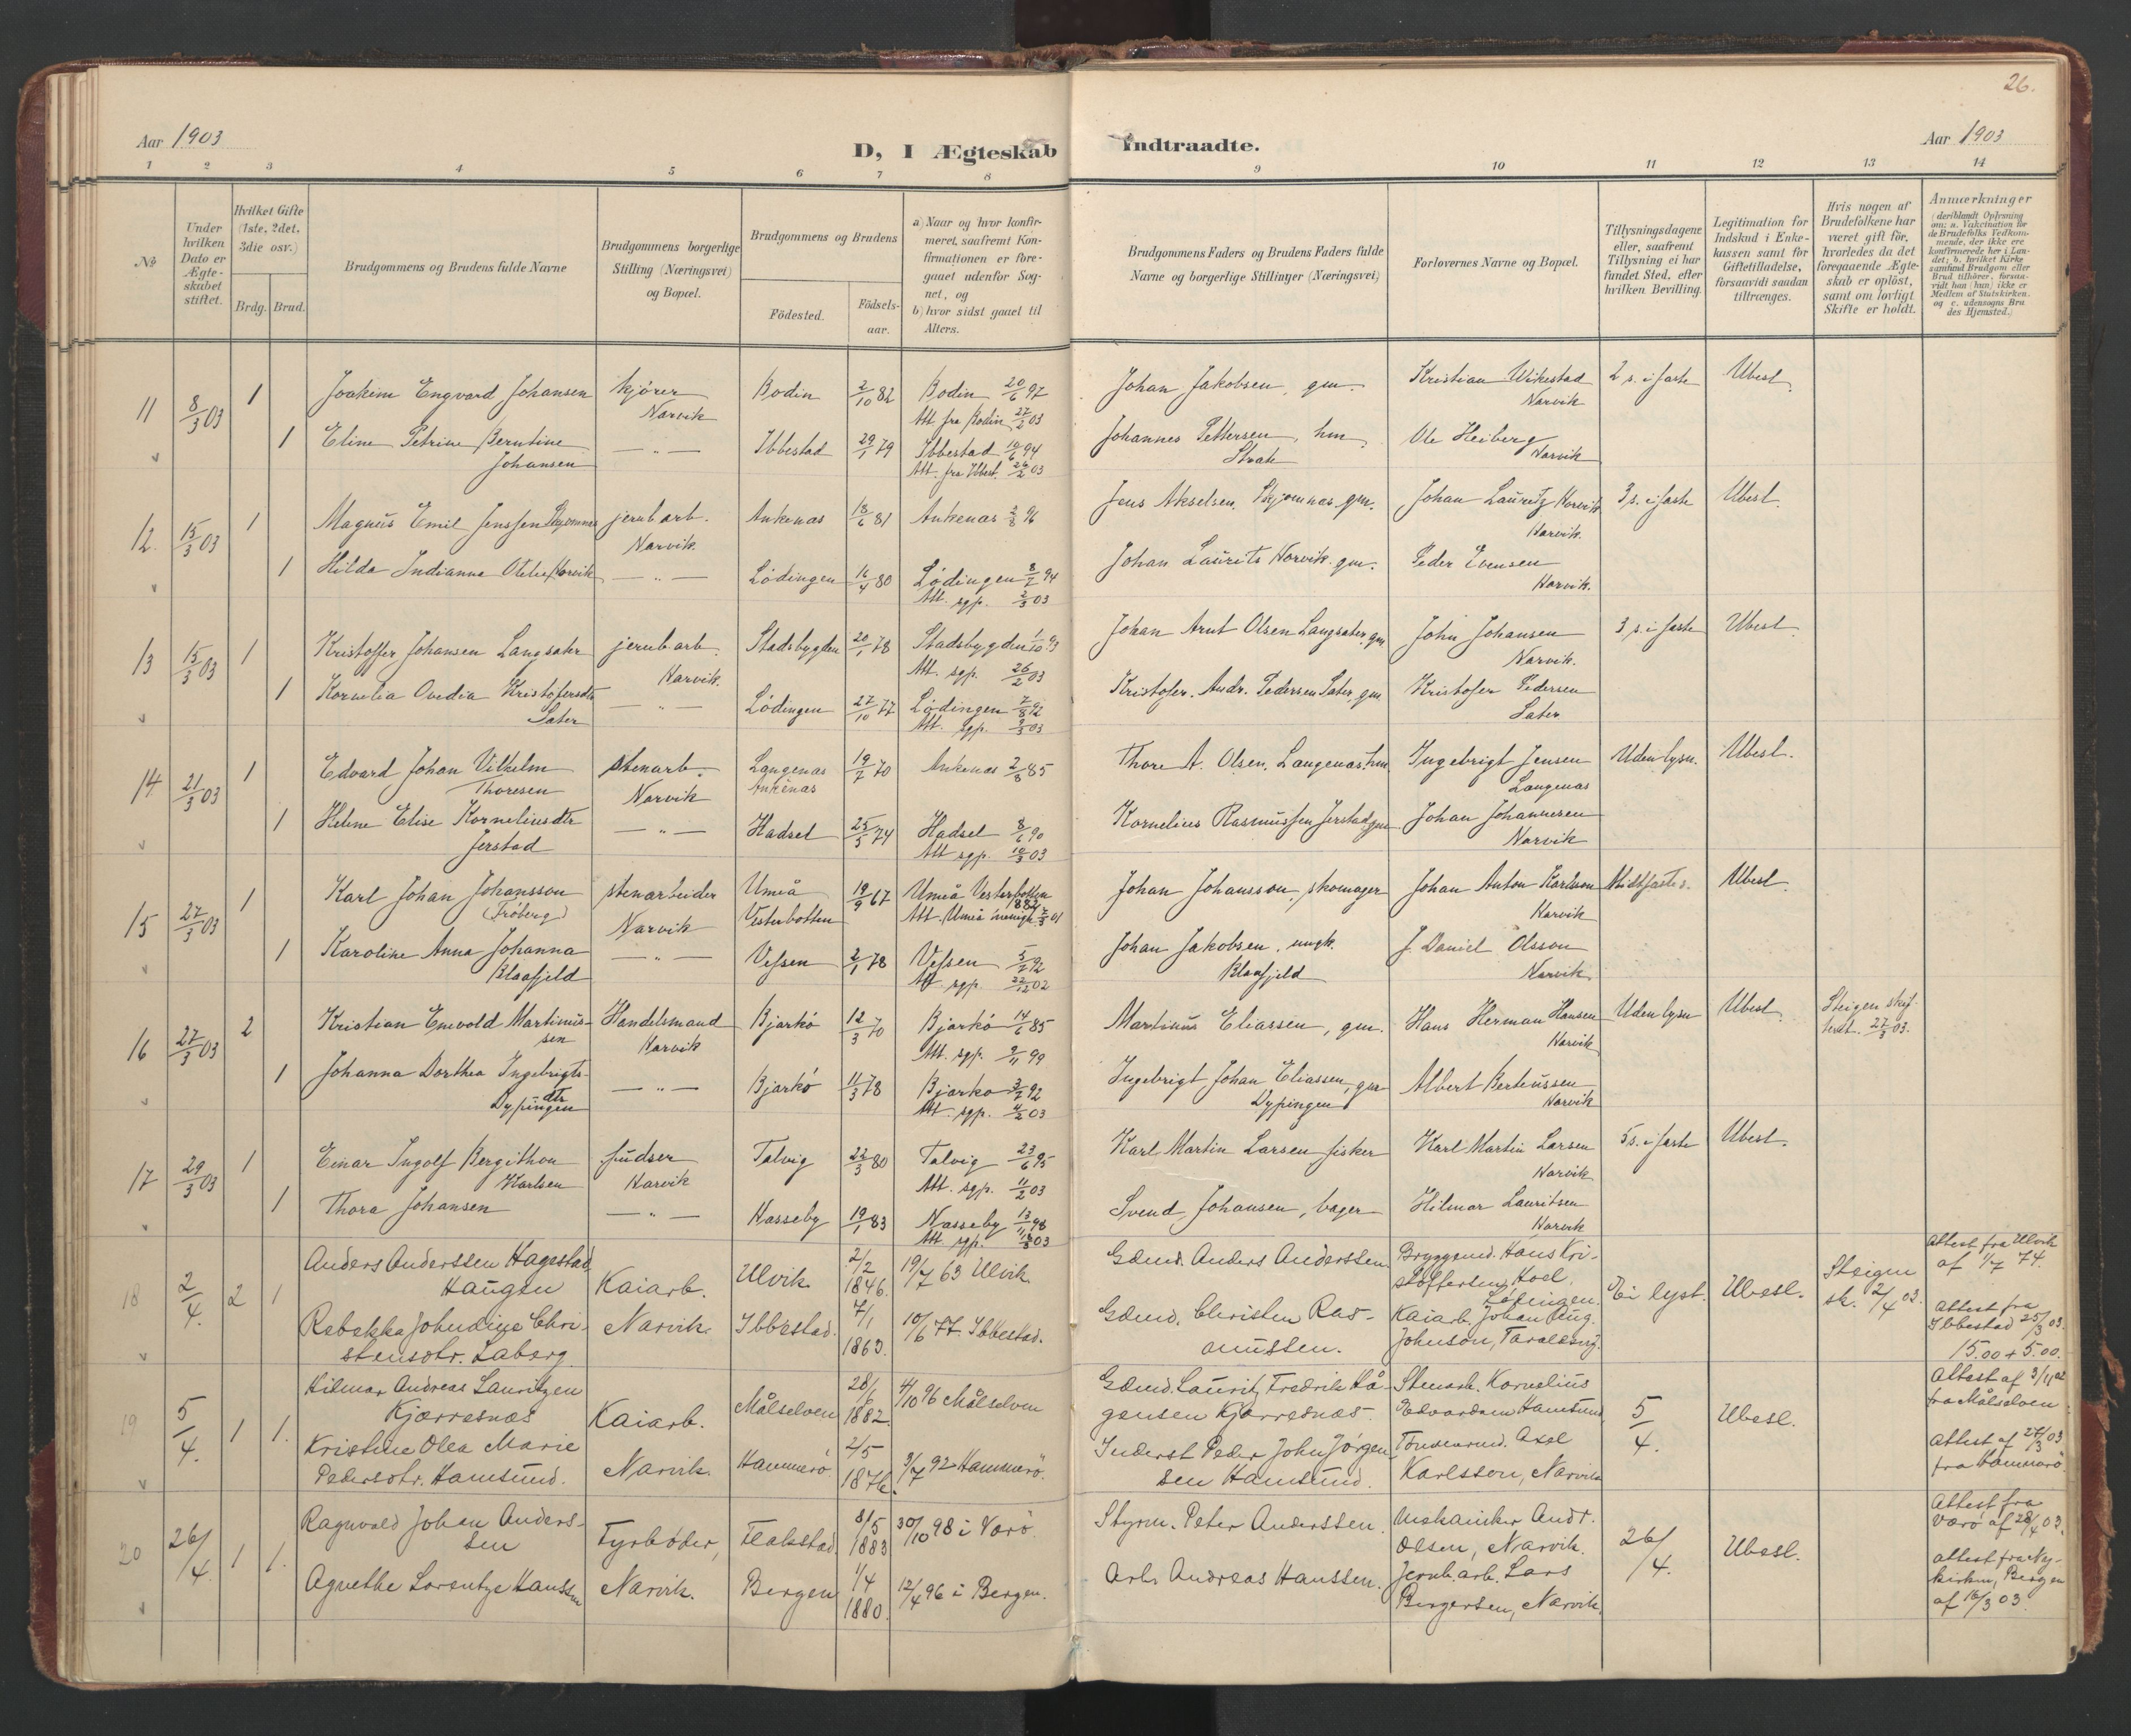 26.
Aar 1903
D, I Ægteskab Indtraadte.
Aar 1903
1 2 3 4 5 6 7 8 9 10 11 12 13 14
No
Under hvilken Dato er Ægte-skabet stiftet.
Hvilket Gifte (1ste, 2det, 3die osv.)
Brdg. Brud.
Brudgommens og Brudens fulde Navne
Brudgommens borgerlige Stilling (Næringsvei) og Bopæl.
Brudgommens og Brudens
Födested.
Födsels-aar.
a) Naar og hvor konfir-meret, saafremt Kon-firmationen er fore-gaaet udenfor Sog-net, og
b) hvor sidst gaaet til Alters.
Brudgommens Faders og Brudens Faders fulde Navne og borgerlige Stillinger (Næringsvei)
Forlovernes Navne og Bopæl.
Tillysningsdagene eller, saafremt Tillysning ei har fundet Sted, efter hvilken Bevilling.
Legitimation for Indskud i Enke-kassen samt for Giftetilladelse, forsaavidt saadan tiltrænges.
Hvis nogen af Brudefolkene har været gift för, hvorledes da det foregaaende Ægte-skab er oplöst, samt om lovligt Skifte er holdt.
Anmærkninger
(deriblandt Oplysning om: a. Vakcination for de Brudefolks Vedkom-mende, der ikke ere konfirmerede her i Lan-det; b. hvilket Kirke-samfund Brudgom eller Brud tilhörer, forsaa-vidt han (hun) ikke er Medlem af Statskirken, og c. udensogns Bru-des Hjemsted.)
11 8/3 03 1 Joakim Engvard Johansen kjører Narvik Bodin 2/10 82 Bodin 20/6 97 Att fra Bodin 27/2 03 Johan Jakobsen, gm. Kristian Wikestad Narvik 2 s. i faste Ubesl.
1 Eline Petrine Berntine Johansen — " — Ibbestad 29/1 79 Ibbestad 10/6 94 Att. fra Ibbest. 26/2 03 Johannes Pettersen, hm. Ole Heiberg Narvik
12. 15/3 03 1 Magnus Emil Jenssen Skjomnes jernb arb. Narvik. Ankenas 18/6 81 Ankenas 2/8 96 Jens Akselsen, Skjomnas, gm. Johan Lauritz Norvik Narvik. 3 s. i faste Ubesl.
1 Hilda Indianna Otelie Norvik — " — Lødingen 16/4 80 Lødingen 8/7 94 Att. sgp. 2/3 03 Johan Laurits Norvik gm. Peder Evensen Narvik.
13 15/3 03 1 Kristoffer Johansen Langsater jernb arb. Narvik. Stadsbygden 20/1 78 Stadsbygden 1/10 93 Att. sgp. 26/2 03 Johan Arnt Olsen Langsater, gm John Johansen Narvik. 3 s. i faste Ubesl.
1 Kornelia Ovedia Kristofersdtr Sater — " — Lödingen 27/10 77 Lödingen 7/8 92 Att. sgp. 2/3 03 Kristofer. Andr. Pedersen Sater, gm. Kristofer Pedersen Sater
14 21/3 03 1 Edvard Johan Vilhelm Thoresen stenarb. Narvik Langenas Ankenas 19/7 70 Ankenas 2/8 85 Thore A. Olsen, Langenas, hm Ingebrigt Jensen Langenas Uden lysn. Ubesl.
1 Helene Elise Korneliusdtr Jerstad — " — Hadsel 25/5 74 Hadsel 8/6 90 Att sgp. 10/3 03 Kornelius Rasmussen Jerstad gm Johan Johannesen Narvik
15 27/3 03 1 Karl Johan Johansson (Fröberg) stenarbeider Narvik Umeå Vesterbotten 19/9 67 Umeå Vesterbotten 1882 Att. Umeå menigh. 01 Johan Johansson, skomager Johan Anton Karlsson Narvik Midtfaste s. Ubesl.
1 Karoline Anna Johanna Blaafjeld — " — Vefsen 2/1 78 Vefsen 5/7 92 Att sgp. 22/12 02 Johan Jakobsen, Blaafjeld J. Daniel Olsson Narvik.
16 27/3 03 2 Kristian Enevold Martinus-sen Handelsmand Narvik Bjarkö 12/3 70 Bjarkö 14/6 85 Att. sgp. 9/11 99 Martinus Eliassen, gm. Hans Herman Hansen Narvik Uden lysn Ubesl. Steigen skif-teat. 27/3 03.
1 Johanna Dorthea Ingebrigts-dtr Dypingen — " — Bjarkö 11/3 78 Bjarkö 3/7 92 Att. sgp. 4/2 03 Ingebrigt Johan Eliassen, gm Dypingen Albert Berteussen Narvik
17 29/3 03 1 Einar Ingolf Bergithon Karlsen pudser Narvik Talvig 22/3 80 Talvig 23/6 95 Att. sgp. 11/2 03 Karl Martin Larsen fisker Karl Martin Larsen Narvik 5 s. i faste Ubesl.
1 Thora Johansen — " — Nasseby 19/1 83 Nasseby 13/11 98 Att. sgp. 18/3 03 Svend Johansen, bager Hilmar Lauritsen Narvik
18 2/4. 2 1 Anders Anderssen Hagestad Haugen Kaiarb. Ulvik 2/2 1846. 19/7 63 Ulvik Gdmd. Anders Anderssen Bryggemd. Hans Kri-stoffersen, Hoel, Lödingen. Ei lyst. Ubesl. Steigen sk. 2/4 03. Attest fra Ulvik af 1/7 74.
Rebekka Johndine Chri-stensdtr. Laberg. Narvik. Ibbestad. 7/1 1863. 10/6 77 Ibbestad. Gdmd. Christen Ras-mussen. Kaiarb. Johan Aug. Johnson, Taraldsvig. Attest fra Ibbestad 25/3 03. 15.00 + 5.00.
19 5/4. 1 1. Hilmar Andreas Lauritzen Kjærresnæs Kaiarb. Målselven 28/6 1882. 4/10 96 Målselven Gdmd. Lauritz Fredrik Hå-gensen Kjærresnæs. Stenarb. Kornelius Edvardsen Hamsund 5/4. Ubesl. Attest af 3/11 02 fra Målselven
Kristine Olea Marie Pedersdtr. Hamsund. Narvik. Hammerö 2/5 1876. 3/7 92 Hammerö. Inderst Peder John Jörgen-sen Hamsund. Axel Karlsson, Narvik Attest af 27/3 03 fra Hammerö.
20 26/4 1 1. Ragnvald Johan Anders-sen Fyrbøder, Flakstad 8/5 1883 30/10 98 i Værö. Styrm. Peter Anderssen. Mekaniker Andr. Olsen, Narvik. 26/4. Ubesl. Attest fra Værö af 28/4 03.
Agnethe Lorentze Hanssen Narvik. Bergen 1/4 1880. 12/4 96 i Bergen. Arb. Andreas Hanssen. Jernb. arb. Lars Birgersen, Narvik. Attest fra Ny-kirken, Bergen af 16/3 03.